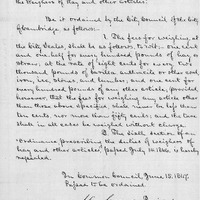 the weighers of Hay and other articles.
Be it ordained by the City Council of the City
of Cambridge as follows:
1. The fees for weighing, at
the City Scales, shall be as follows, to wit: one cent
and one half for every hundred pounds of hay or
straw, at the rate of eight cents for every two
thousand pounds of
iron, ice, stones, and lumber, and one cent for
every hundred pounds of any other article, provided
however, that the fee for weighing any article other
than those above specified, shall never be less than
ten cents, nor more than fifty cents; and the tare
shall in all cases be weighed without charge.
2. The sixth section of an
"Ordinance prescribing the duties of weighers of
hay and other articles" passed is hereby
repealed.
In Common Council, June 15, 1867.
Passed to be ordained